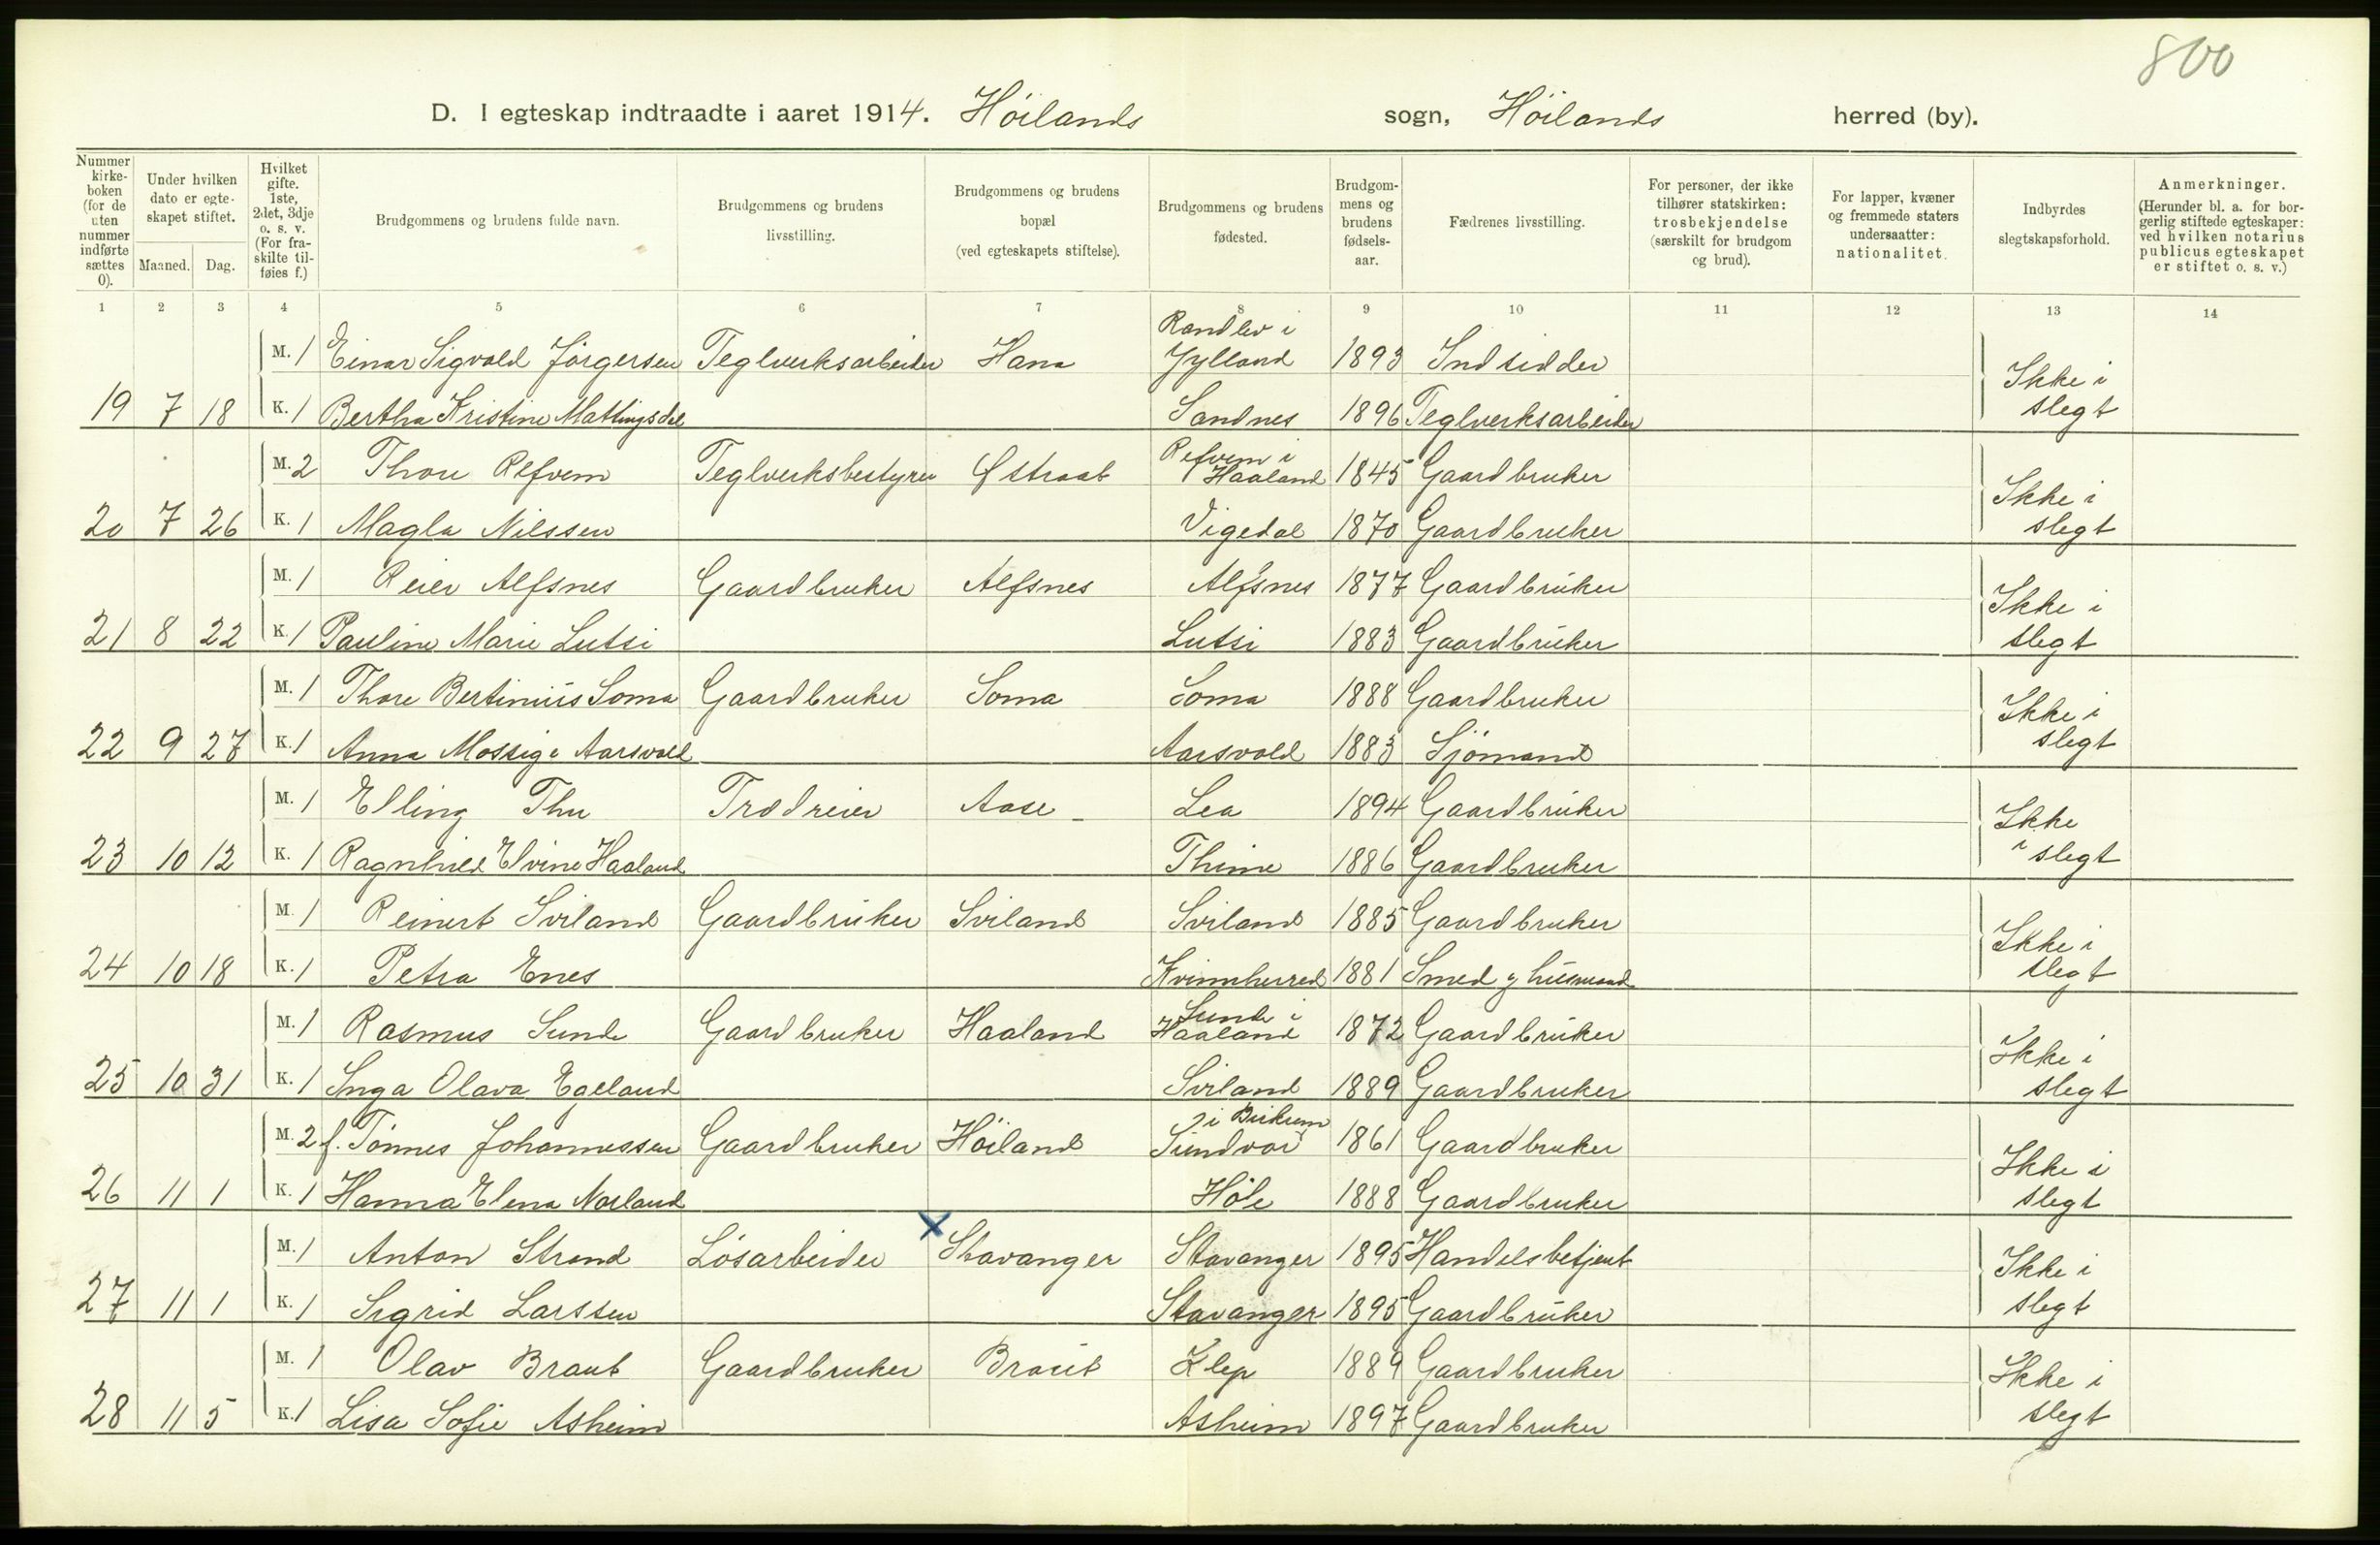 800
D. I egteskap indtraadte i aaret 1914. Höilands sogn, Höilands herred (by).
Nummer kirke-boken (for de uten nummer indførte sættes 0).
Under hvilken dato er egte-skapet stiftet.
Maaned. Dag.
Hvilket gifte. 1ste, 2det, 3dje o. s. v. (For fra-skilte til-føies f.)
Brudgommens og brudens fulde navn.
Brudgommens og brudens livsstilling.
Brudgommens og brudens bopæl (ved egteskapets stiftelse).
Brudgommens og brudens fødested.
Brudgom-mens og brudens fødsels-aar.
Fædrenes livsstilling.
For personer, der ikke tilhører statskirken: trosbekjendelse (særskilt for brudgom og brud).
For lapper, kvæner og fremmede staters undersaatter: nationalitet.
Indbyrdes slegtskapsforhold.
Anmerkninger. (Herunder bl. a. for bor-gerlig stiftede egteskaper: ved hvilken notarius publicus egteskapet er stiftet o. s. v.)
1 2 3 4 5 6 7 8 9 10 11 12 13 14
M. 1 Einar Sigvald Jörgensen Teglverksarbeider Hana Randlev i Jylland 1893 Indsidder Ikke i
19 7 18 K. 1 Bertha Kristine Mattingsdal Sandnes 1896 Teglverksarbeider slegt
M. 2 Thore Refvem Teglverksbestyrer Østraat Refvem i Haaland 1845 Gaardbruker Ikke i
20 7 26 K. 1 Magla Nilssen Vigedal 1870 Gaardbruker slegt
M. 1 Reier Alfsnes Gaardbruker Alfsnes Alfsnes 1877 Gaardbruker Ikke i
21 8 22 K. 1 Pauline Marie Lutsi Lutsi 1883 Gaardbruker slegt
M. 1 Thore Bertinius Soma Gaardbruker Soma Soma 1888 Gaardbruker Ikke i
22 9 27 K. 1 Anna Mossige Aarsvold Aarsvold 1883 Sjömand slegt
M. 1 Elling Thu Trædreier Aase Lea 1894 Gaardbruker Ikke
23 10 12 K. 1 Ragnhild Elvine Haaland Thime 1886 Gaardbruker i slegt
M. 1 Reinert Sviland Gaardbruker Sviland Sviland 1885 Gaardbruker Ikke i
24 10 18 K. 1 Petra Enes Kvinnherred 1881 Smed og husmand slegt
M. 1 Rasmus Sunde Gaardbruker Haaland Sunde i Haaland 1872 Gaardbruker Ikke i
25 10 31 K. 1 Inga Olava Egeland Sviland 1889 Gaardbruker slegt
M. 2 f. Tönnes Johannessen Gaardbruker Höiland Sundvor i Birkrem 1861 Gaardbruker Ikke i
26 11 1 K. 1 Hanna Elena Norland Höle 1888 Gaardbruker slegt
M. 1 Anton Strand Lösarbeider x Stavanger Stavanger 1895 Handelsbetjent Ikke i
27 11 1 K. 1 Sigrid Larssen Stavanger 1895 Gaardbruker slegt
M. 1 Olav Braut Gaardbruker Braut Klep 1889 Gaardbruker Ikke i
28 11 5 K. 1 Lisa Sofie Asheim Asheim 1897 Gaardbruker slegt